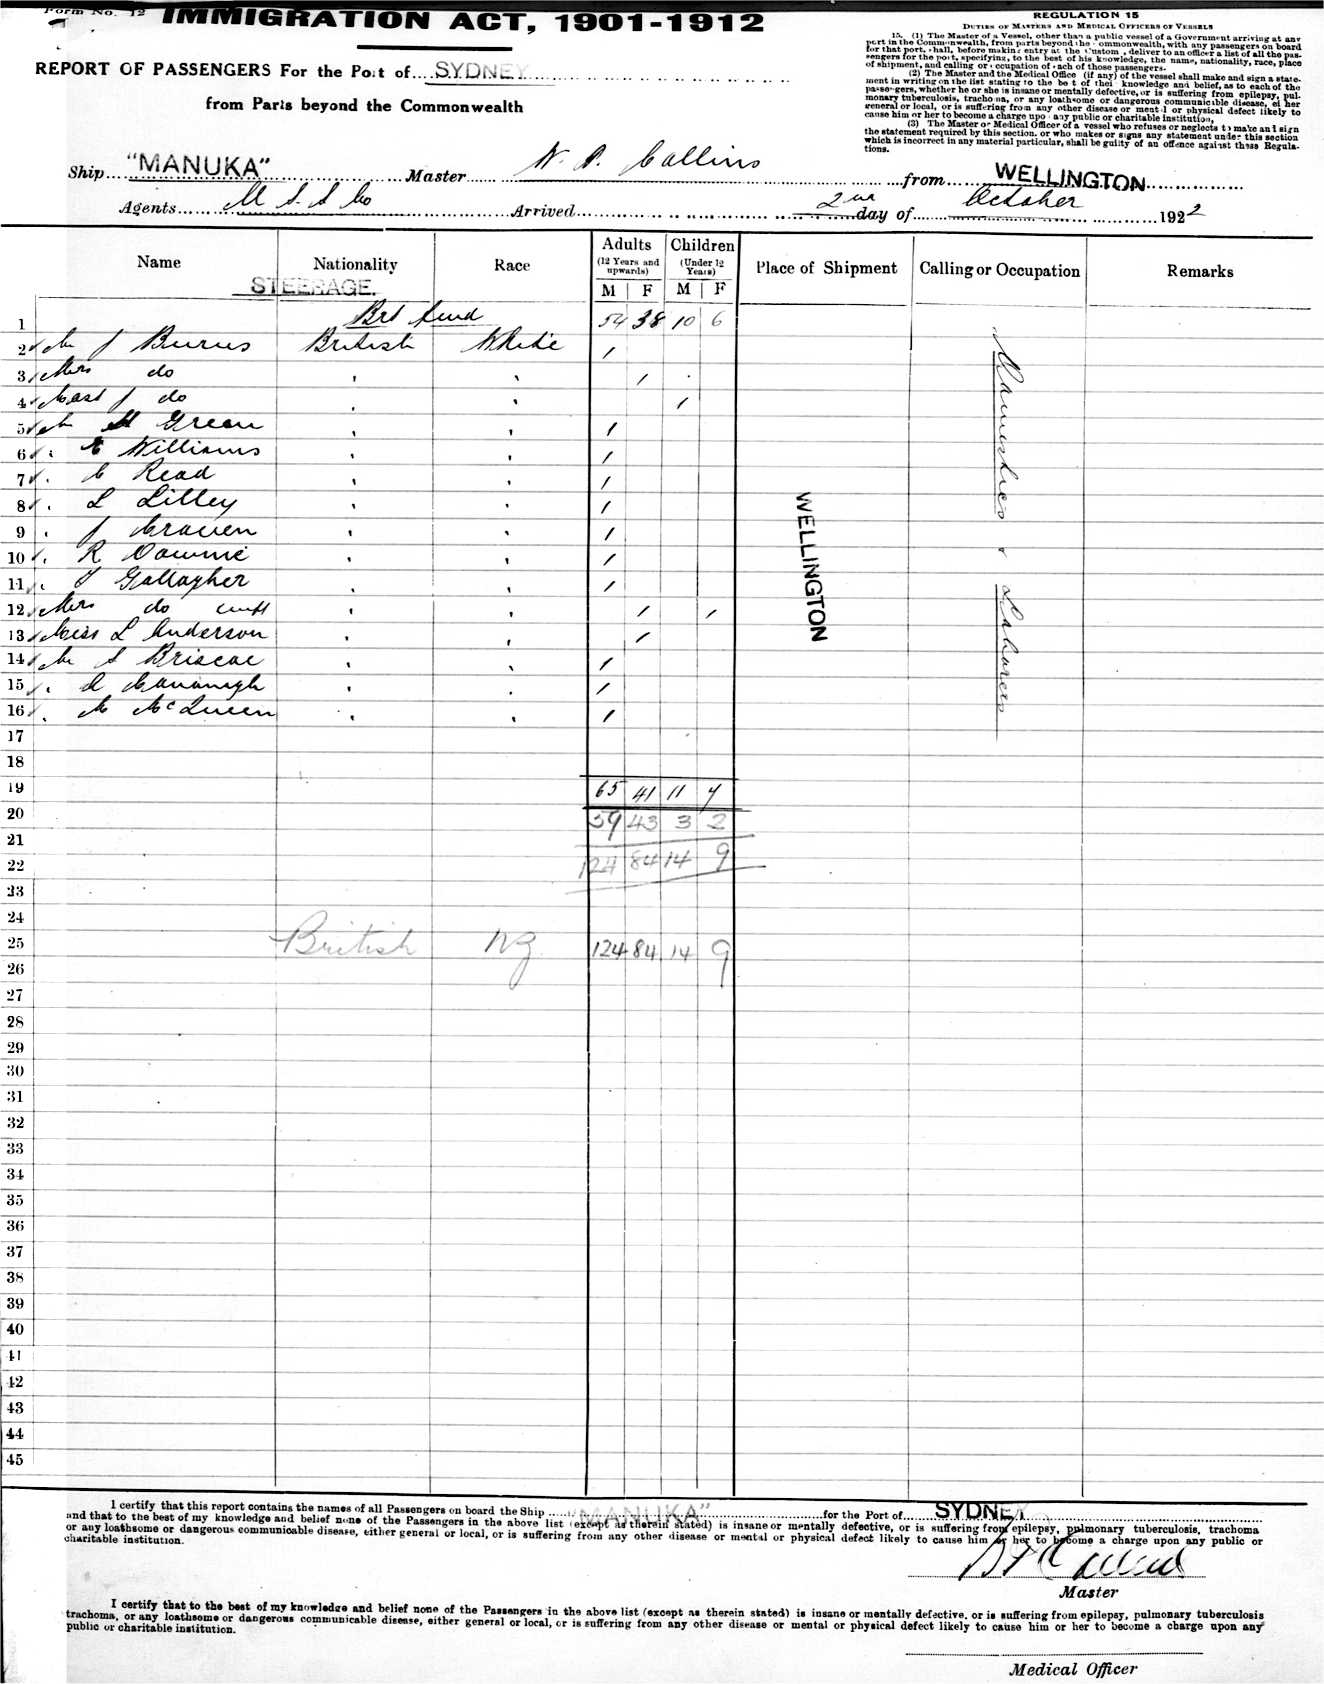 Form No. 12 IMMIGRATION ACT, 1901-1912
REPORT OF PASSENGERS For the Port of SYDNEY
from Parts beyond the Commonwealth
REGULATION 15
DUTIES OF MASTERS AND MEDICAL OFFICERS OF VESSELS
15. (1) The Master of a Vessel, other than a public vessel of a Government arriving at any
port in the Commonwealth, from parts beyond the Commonwealth, with any passengers on board
for that port, shall, before making entry at the Custom, deliver to an officer a list of all the pas-
sengers for the port, specifying, to the best of his knowledge, the name, nationality, race, place
of shipment, and calling or occupation of each of those passengers.
(2) The Master and the Medical Office (if any) of the vessel shall make and sign a state-
ment in writing on the list stating to the best of their knowledge and belief, as to each of the
passengers, whether he or she is insane or mentally defective, or is suffering from epilepsy, pul-
monary tuberculosis, trachoma, or any loathsome or dangerous communicable disease, either
general or local, or is suffering from any other disease or mental or physical defect likely to
cause him or her to become a charge upon any public or charitable institution,
(3) The Master or Medical Officer of a vessel who refuses or neglects to make and sign
the statement required by this section, or who makes or signs any statement under this section
which is incorrect in any material particular, shall be guilty of an offence against these Regula-
tions.
Ship "MANUKA" Master W. P. Collins from WELLINGTON
Agents U S S Co Arrived 2nd day of October 1922
Name Nationality Race Adults (12 Years and upwards) M F Children (Under 12 Years) M F Place of Shipment Calling or Occupation Remarks
STEERAGE.
1 Brt fwd 54 38 10 6
2 Mr J Burns British White 1
3 Mrs do 1
4 Mast J do 1
5 Mr H Green 1
6 E Williams 1
7 C Read 1
8 L Lilley 1
9 J Craven 1
10 R Downie 1
11 T Gallagher 1
12 Mrs do inft 1 1
13 Miss L Anderson 1
14 Mr A Briscoe 1
15 D Cavanagh 1
16 M McQueen 1
WELLINGTON
Domestics & Labourers
17
18
19 65 41 11 7
20 59 43 3 2
21
22 124 84 14 9
23
24
25 British NZ 124 84 14 9
26
27
28
29
30
31
32
33
34
35
36
37
38
39
40
41
42
43
44
45
I certify that this report contains the names of all Passengers on board the Ship "MANUKA" for the Port of SYDNEY
and that to the best of my knowledge and belief none of the Passengers in the above list (except as therein stated) is insane or mentally defective, or is suffering from epilepsy, pulmonary tuberculosis, trachoma
or any loathsome or dangerous communicable disease, either general or local, or is suffering from any other disease or mental or physical defect likely to cause him or her to become a charge upon any public or
charitable institution.
Master
I certify that to the best of my knowledge and belief none of the Passengers in the above list (except as therein stated) is insane or mentally defective, or is suffering from epilepsy, pulmonary tuberculosis
trachoma, or any loathsome or dangerous communicable disease, either general or local, or is suffering from any other disease or mental or physical defect likely to cause him or her to become a charge upon any
public or charitable institution.
Medical Officer